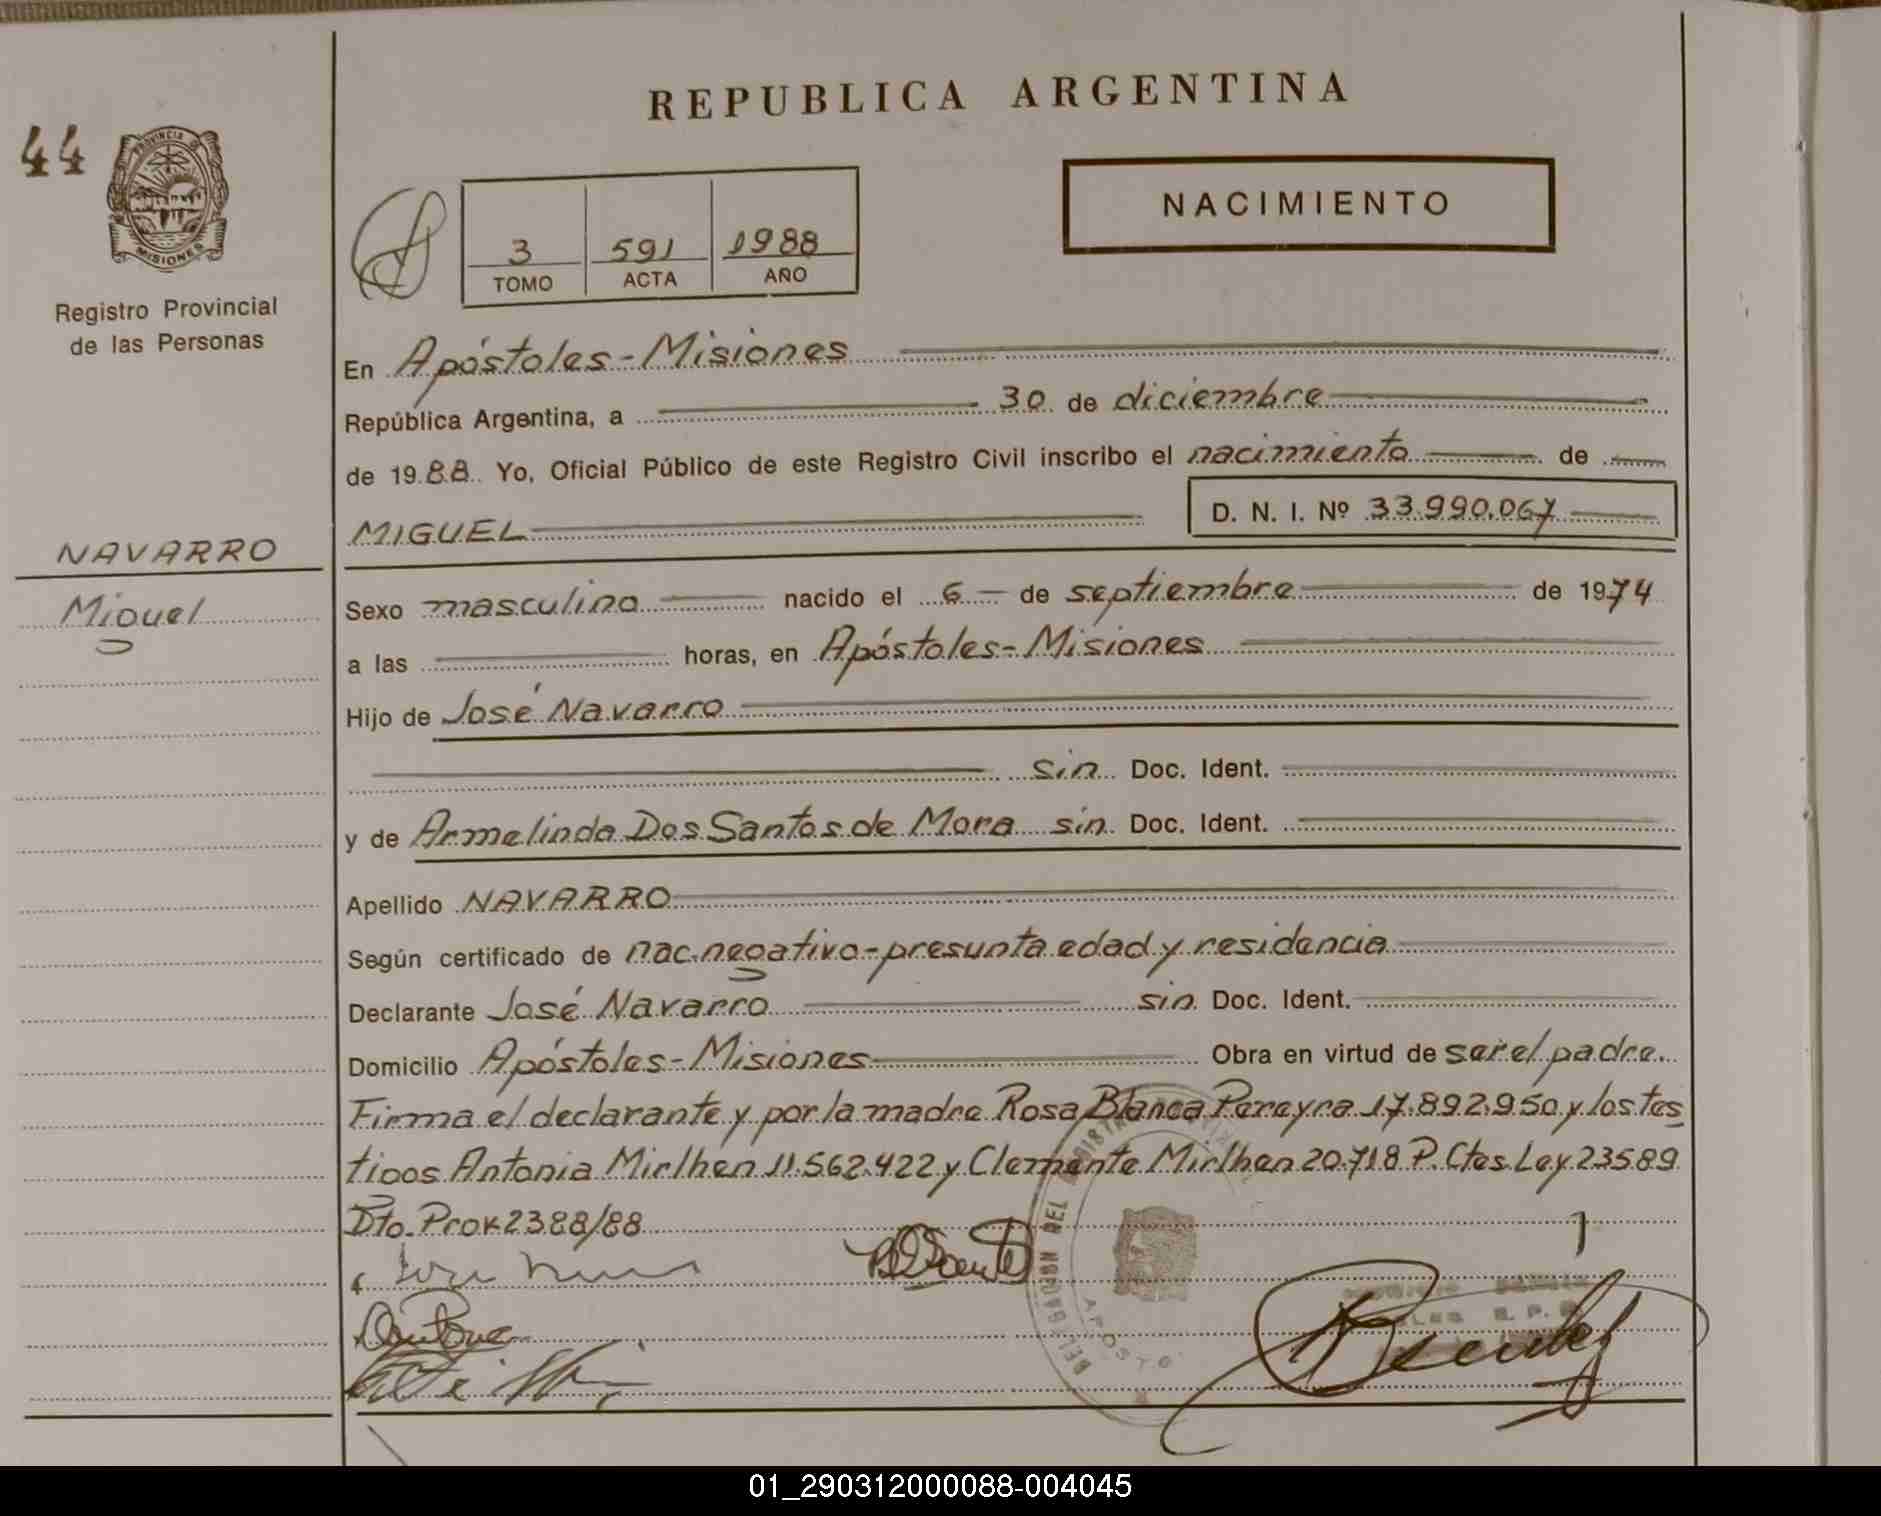 REPUBLICA ARGENTINA
44
PROVINCIA DE
MISIONES
Registro Provincial
de las Personas
NACIMIENTO
3 591 1988
TOMO ACTA AÑO
En Apóstoles-Misiones
República Argentina, a 30 de diciembre
de 1988 Yo, Oficial Público de este Registro Civil inscribo el nacimiento de
MIGUEL D. N. I. Nº 33.990.067
NAVARRO
Miguel
Sexo masculino nacido el 6 de septiembre de 1974
a las horas, en Apóstoles-Misiones
Hijo de José Navarro
sin Doc. Ident.
y de Armelinda Dos Santos de Mora sin Doc. Ident.
Apellido NAVARRO
Según certificado de nac.negativo-presunta edad y residencia
Declarante José Navarro sin Doc. Ident.
Domicilio Apóstoles-Misiones Obra en virtud de ser el padre.
Firma el declarante y por la madre Rosa Blanca Pereyra 17.892.950 y los tes
tigos Antonia Mirlhen 11.562.422 y Clemente Mirlhen 20.718 P. Ctes. Ley 23589
Dto. Prov 2388/88
01_290312000088-004045